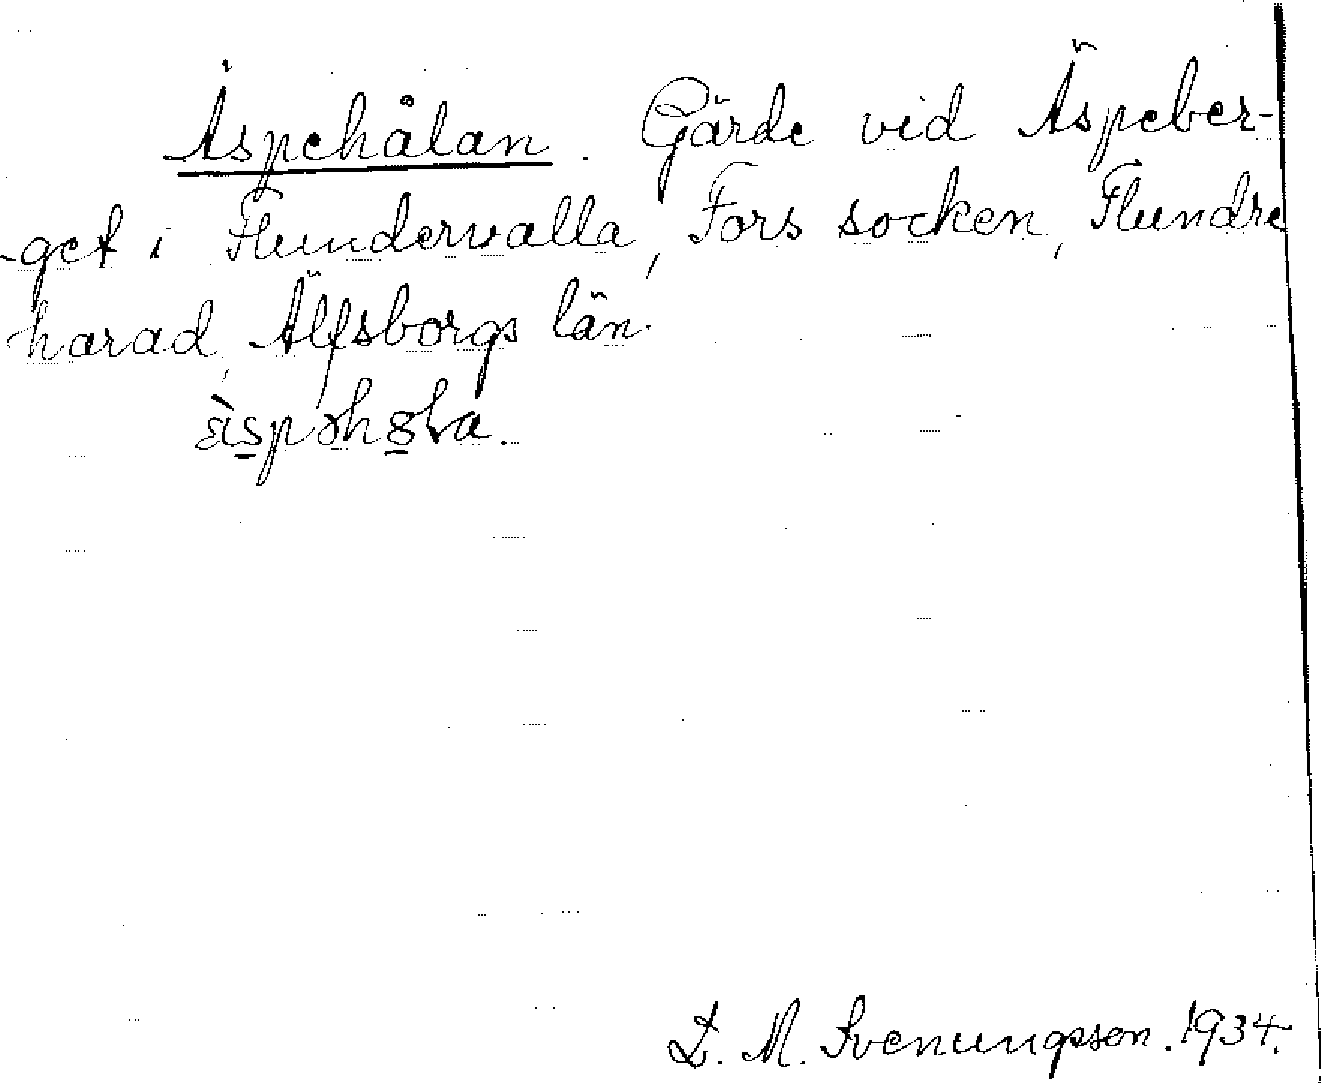 Äspehålan. Gärde vid Äspeber-
-get i Flundervalla, Fors socken, Flundre
härad, Älfsborgs län.
L. M. Svenungsson. 1934.